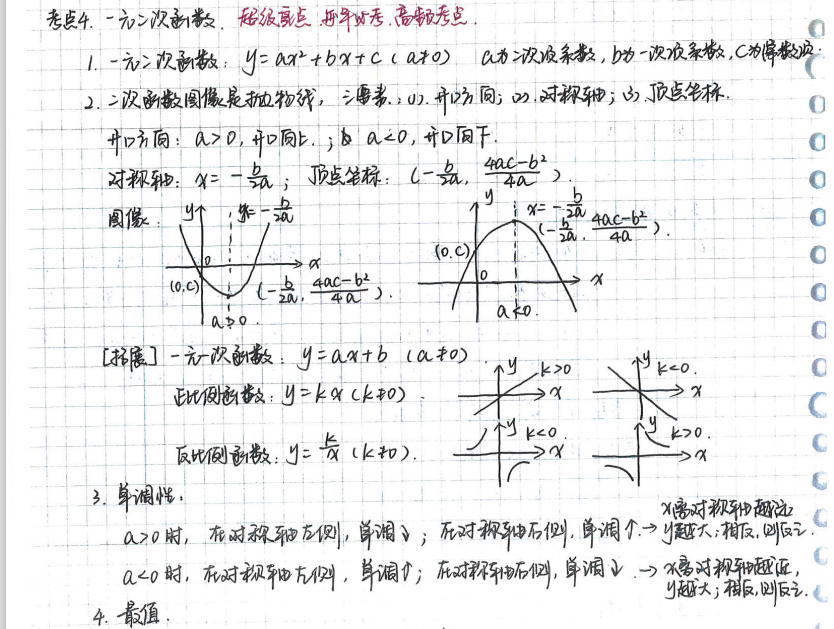 考点4. 一元二次函数. 超级重点 每年必考. 高频考点.
1. 一元二次函数: y=ax²+bx+c (a≠0) a为二次项系数, b为一次项系数, C为常数项.
2. 二次函数图像是抛物线, 三要素: (1). 开口方向; (2). 对称轴; (3). 顶点坐标.
开口方向: a>0, 开口向上.; a<0, 开口向下.
对称轴: x=-b/2a; 顶点坐标: (-b/2a, 4ac-b²/4a).
图像:
y x=-b/2a
0 x
(0,C) (-b/2a, 4ac-b²/4a).
a>0.
y x=-b/2a
(-b/2a, 4ac-b²/4a).
(0,C)
0 x
a<0.
[拓展] 一元一次函数: y=ax+b (a≠0).
正比例函数: y=kx (k≠0).
y k>0 x
y k<0. x
反比例函数: y=k/x (k≠0).
y k<0. x
y k>0. x
3. 单调性:
a>0时, 在对称轴左侧, 单调↓; 在对称轴右侧, 单调↑. → x离对称轴越远
y越大; 相反, 则反之.
a<0时, 在对称轴左侧, 单调↑; 在对称轴右侧, 单调↓. → x离对称轴越近,
y越大; 相反, 则反之.
4. 最值.